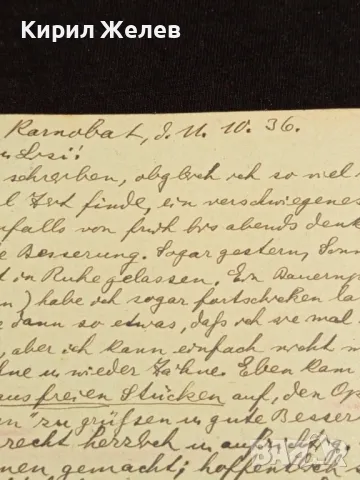 Кирил Желев
Karnobat, d. 11. 10. 36.
Susi!
schreiben, obgleich ich so viel
Zeit finde, ein verschwiegenes
falls von früh bis abends denk
Besserung. Sogar gestern, Sonn
in Ruhe gelassen. Ein Bauern
) habe ich sogar fortschicken la
dann so etwas, daß ich we mal
, aber ich kann einfach nicht m
ne u. wieder Zähne. Eben kam
aus freien Stücken auf, den Op
en" zu grüßen u. gute Besser
recht herzlich u. aufricht
nen gemacht; hoffentlich s
bazar